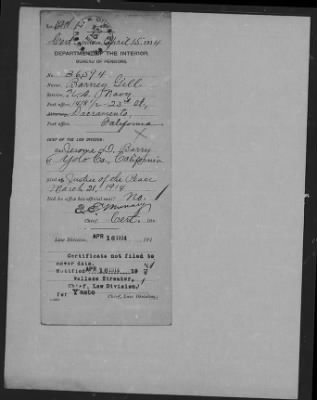 April 15, 1914
DEPARTMENT OF THE INTERIOR,
BUREAU OF PENSIONS.
No. 36594
Name, Barney Gill
Service, U.S. Navy
Post office, 1418 1/2 - 23d St,
Sacramento,
Post office, California
CHIEF OF THE LAW DIVISION:
Is Jerome D. Barry
of Yolo Co., California
Justice of the Peace
March 21, 1914
Has he office his official seal? No.
Chief, Cert. Div.
Law Division, APR 16 1914, 191
Certificate not filed to
cover date.
Notified APR 16 1914 19
Wallace Streater,
Chief, Law Division,
for
Chief, Law Division.